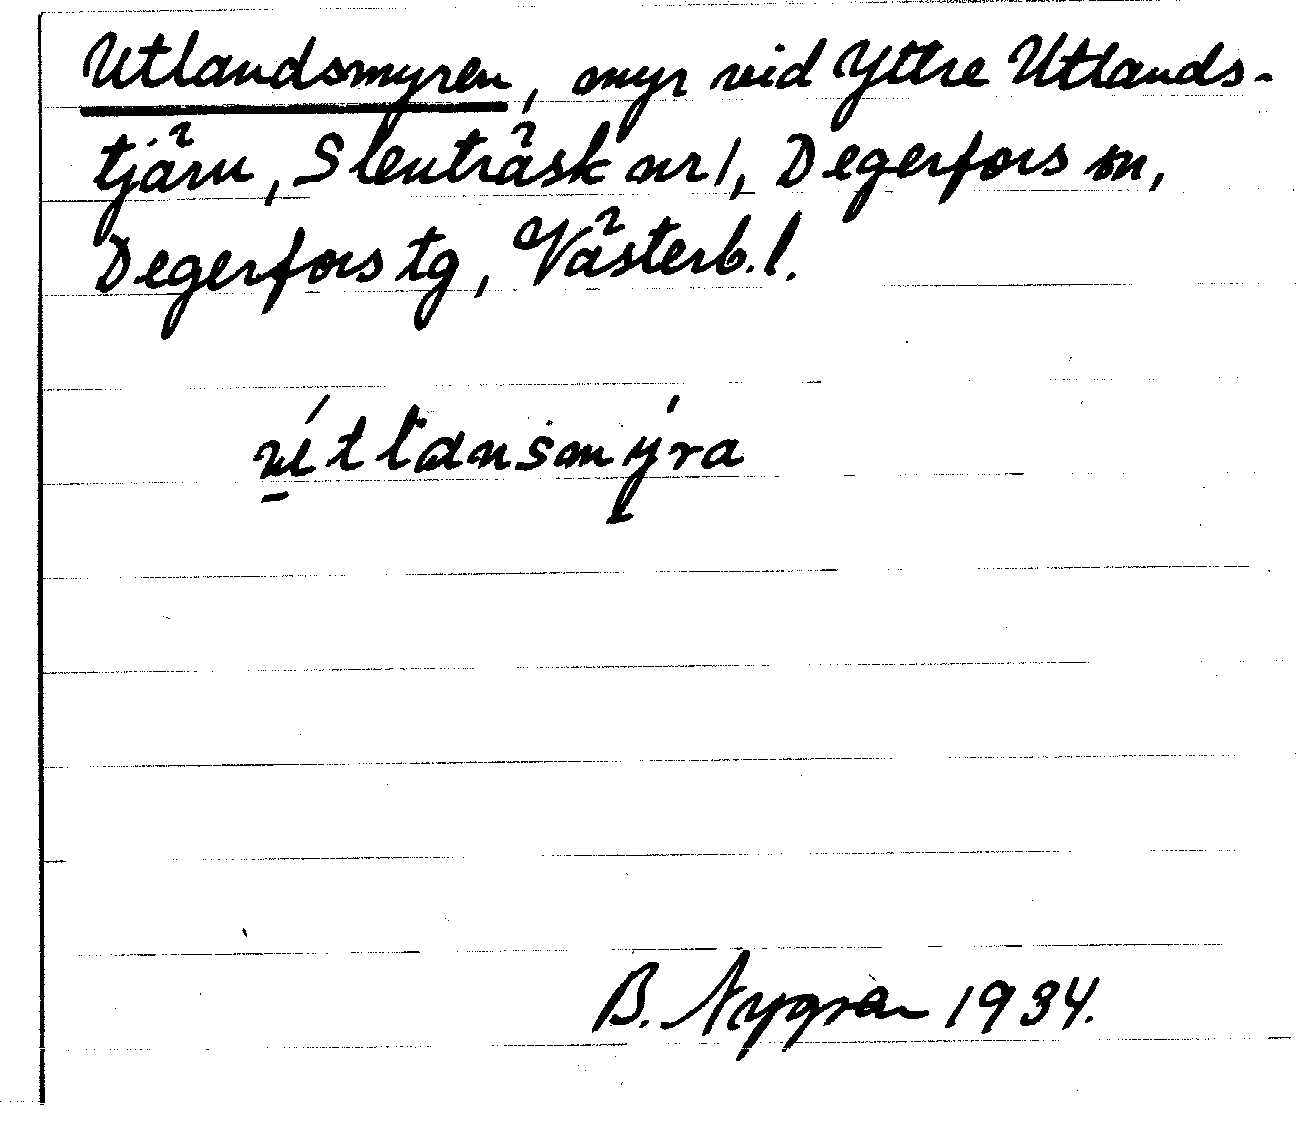 Utlandsmyren, myr vid Yttre Utlands-
tjärn, Slenträsk nr 1, Degerfors sn,
Degerfors tg, Västerb. l.
út lansmýra
B. Nygren 1934.